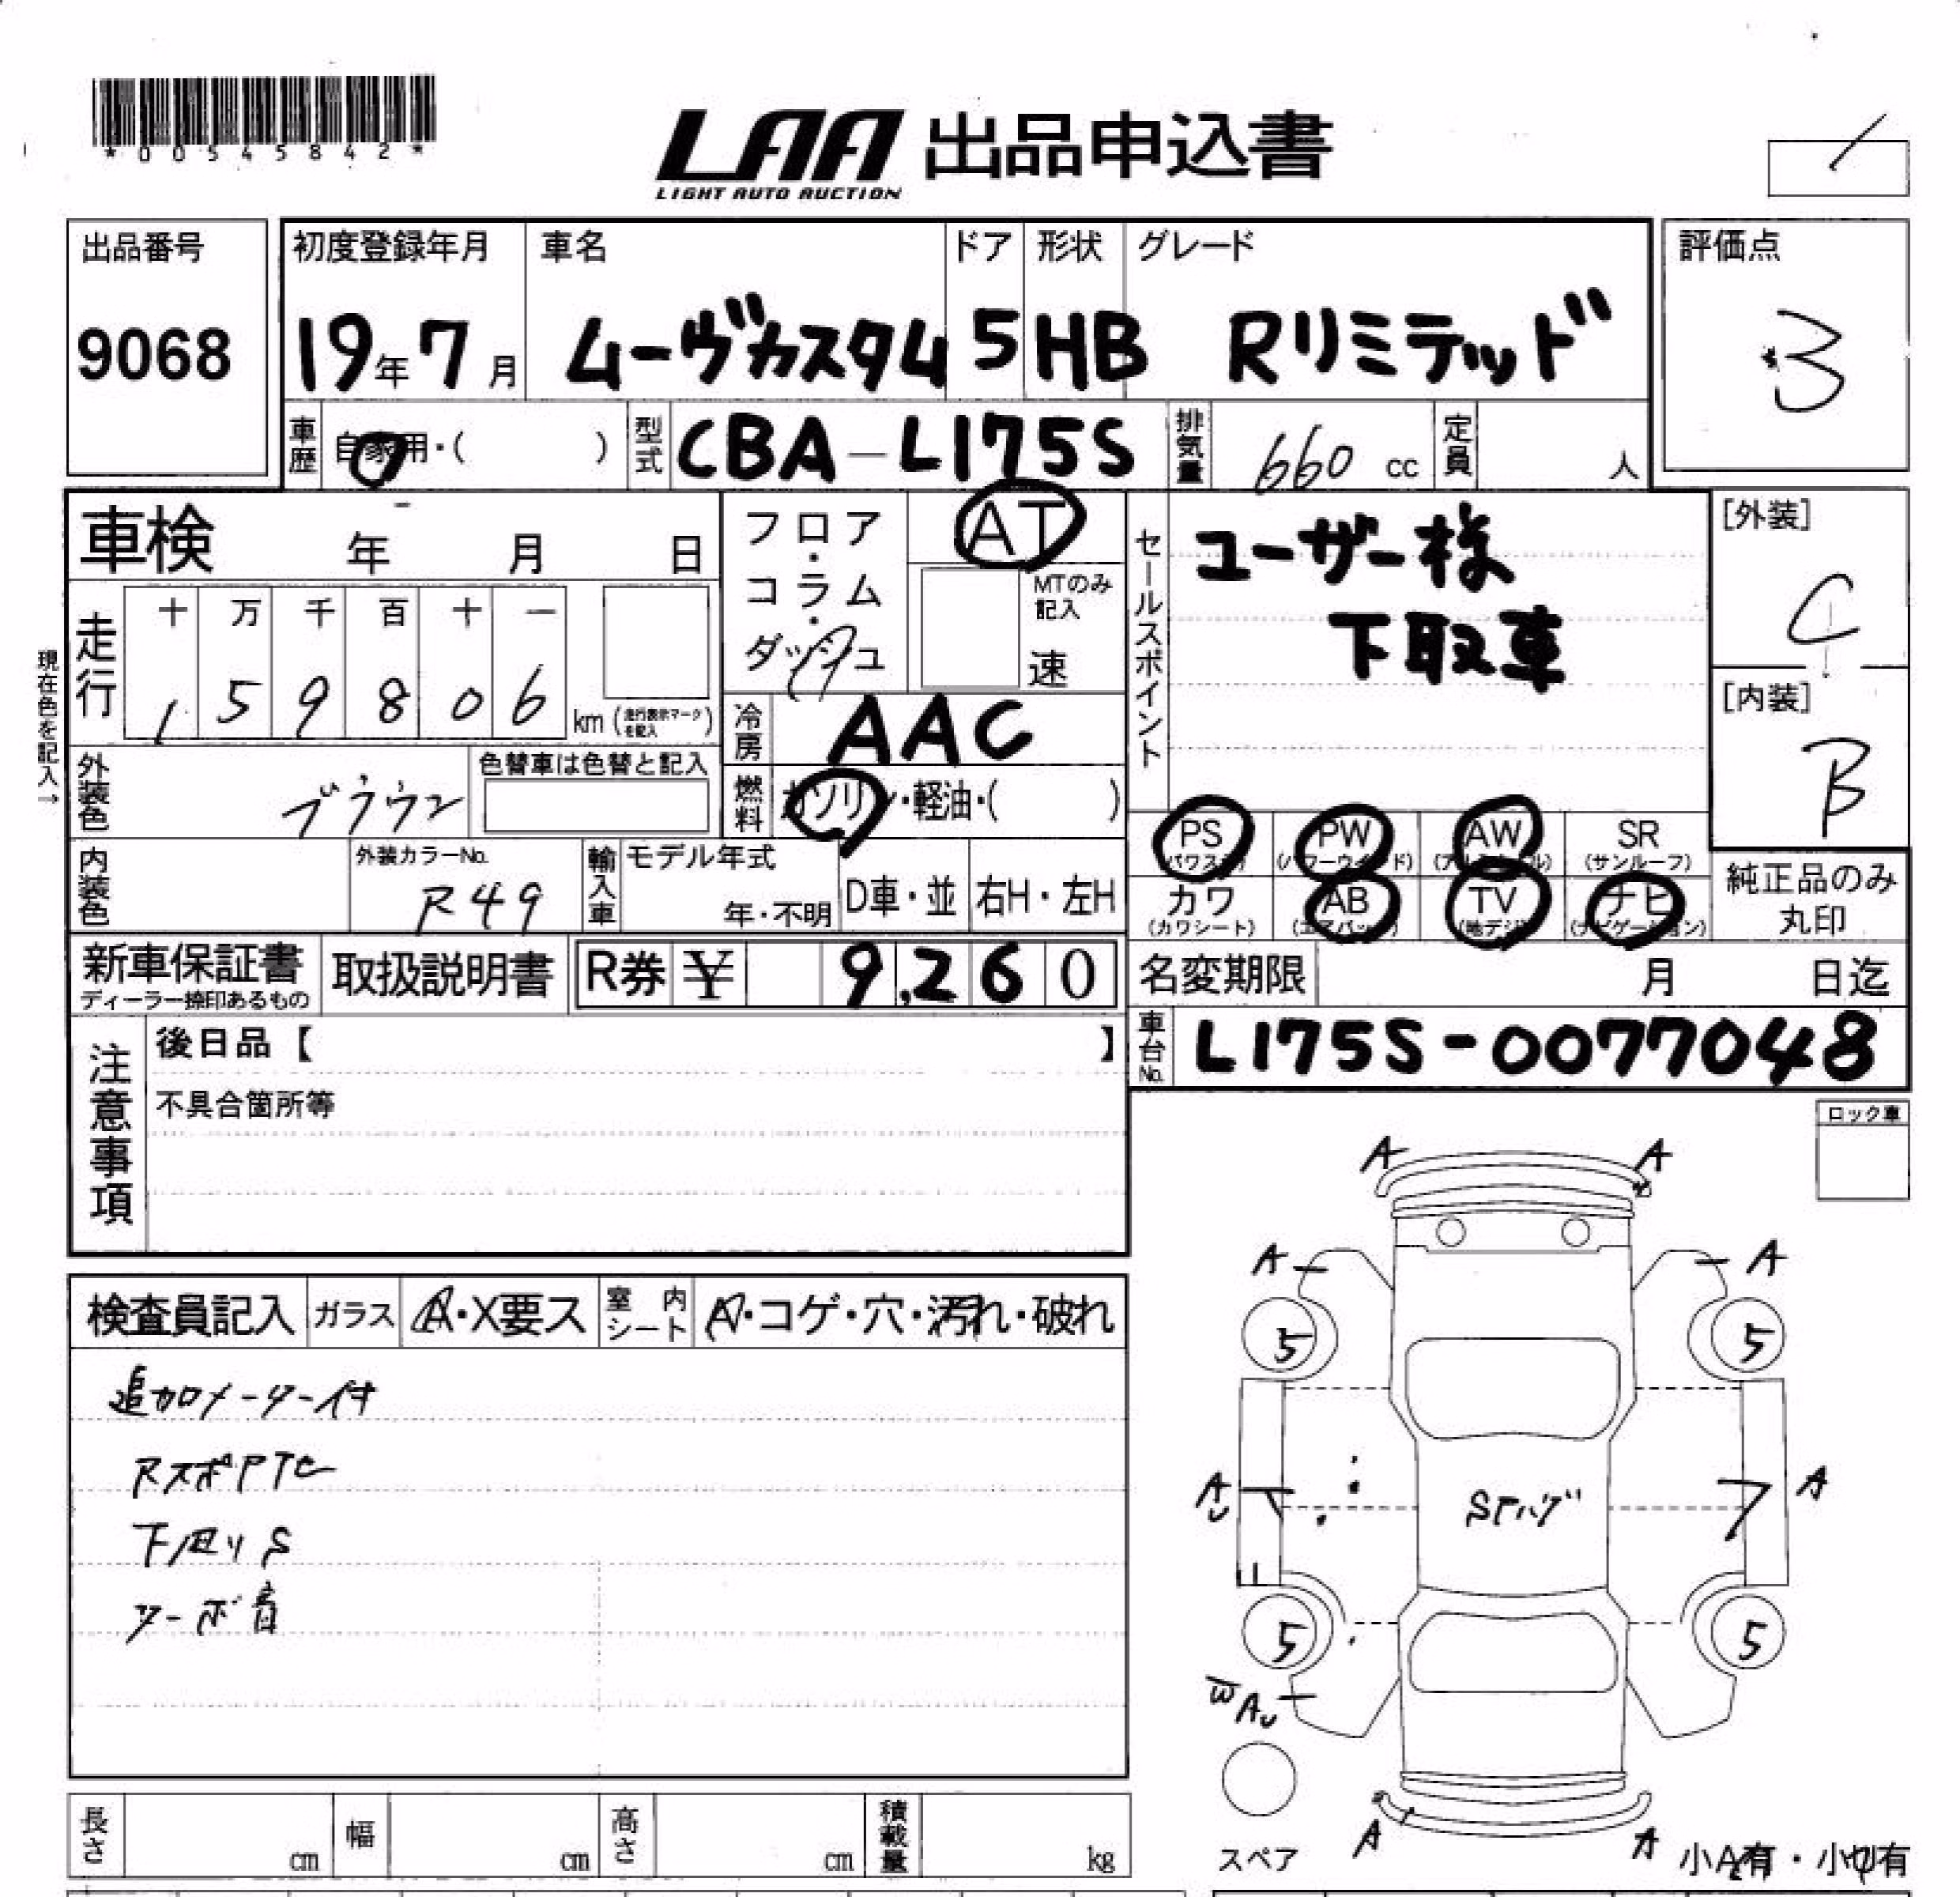 *00545842*
LAA 出品申込書
LIGHT AUTO AUCTION
出品番号
9068
初度登録年月 車名 ドア 形状 グレード
19年7月 ムーヴカスタム 5 HB Rリミテッド
評価点
3
車歴 自家用・( ) 型式 CBA-L175S 排気量 660 cc 定員 人
車検 年 月 日
フロア・コラム・ダッシュ
AT
MTのみ記入
速
セールスポイント
ユーザー様
下取車
[外装]
C
[内装]
B
現在色を記入→
走行 十 万 千 百 十 一
1 5 9 8 0 6 km (走行表示マークを記入)
冷房 AAC
外装色 ブラウン 色替車は色替と記入
燃料 ガソリン・軽油・( )
PS PW AW SR
(パワステ) (パワーウインド) (アルミホイール) (サンルーフ)
カワ AB TV ナビ
(カワシート) (エアバック) (地デジ) (ナビゲーション)
純正品のみ
丸印
内装色 外装カラーNo. R49 輸入車 モデル年式 年・不明 D車・並 右H・左H
新車保証書 取扱説明書 R券 ¥ 9,260
ディーラー捺印あるもの
名変期限 月 日迄
車台No. L175S-0077048
注意事項
後日品【 】
不具合箇所等
ロック車
検査員記入 ガラス A・X要ス 室内シート A・コゲ・穴・汚れ・破れ
追加メーター付
下廻りS
ターボ音
A A
A A
5 5
A A
5 5
A A
スペア
小A有・小U有
長さ cm 幅 cm 高さ cm 積載量 kg